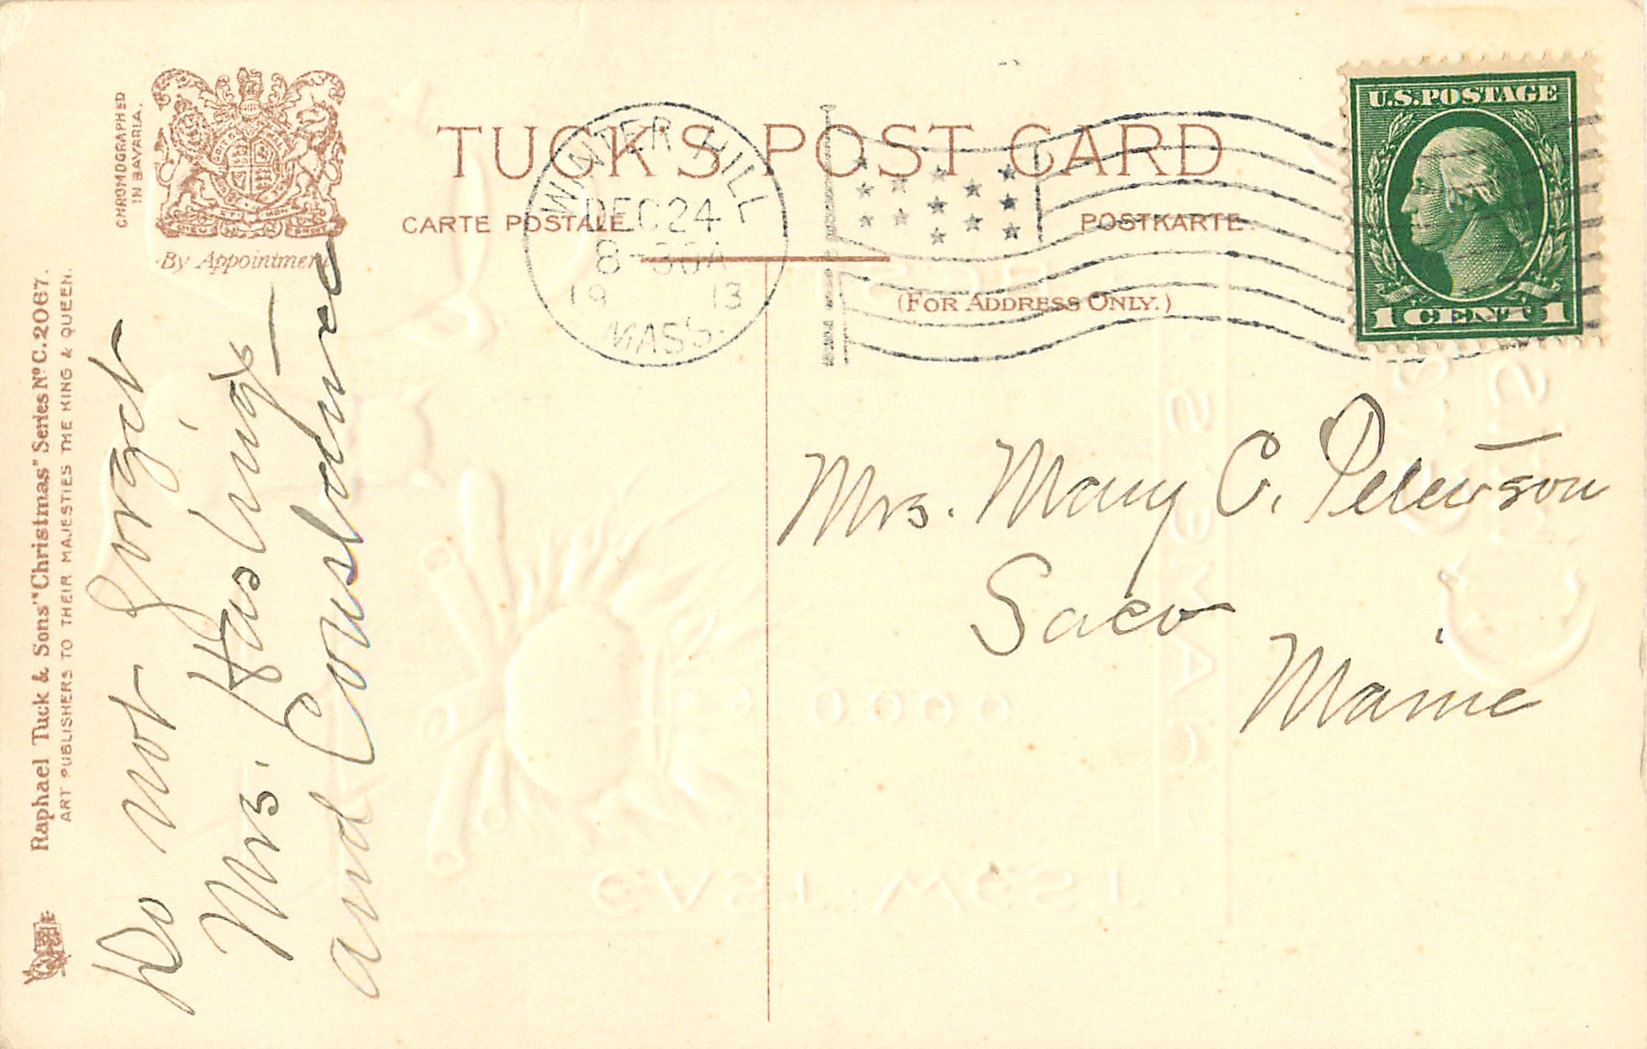 CHROMOGRAPHED
IN BAVARIA.
By Appointment
TUCK'S POST CARD
CARTE POSTALE
POSTKARTE.
(FOR ADDRESS ONLY.)
WINTER HILL
DEC 24
8-30A
19 13
MASS.
U.S. POSTAGE
1 CENT 1
Raphael Tuck & Sons' "Christmas" Series Nº C. 2067.
ART PUBLISHERS TO THEIR MAJESTIES THE KING & QUEEN.
Do not forget
Mrs. Hastings
and
Mrs. Mary C. Peterson
Saco
Maine
EAST WEST